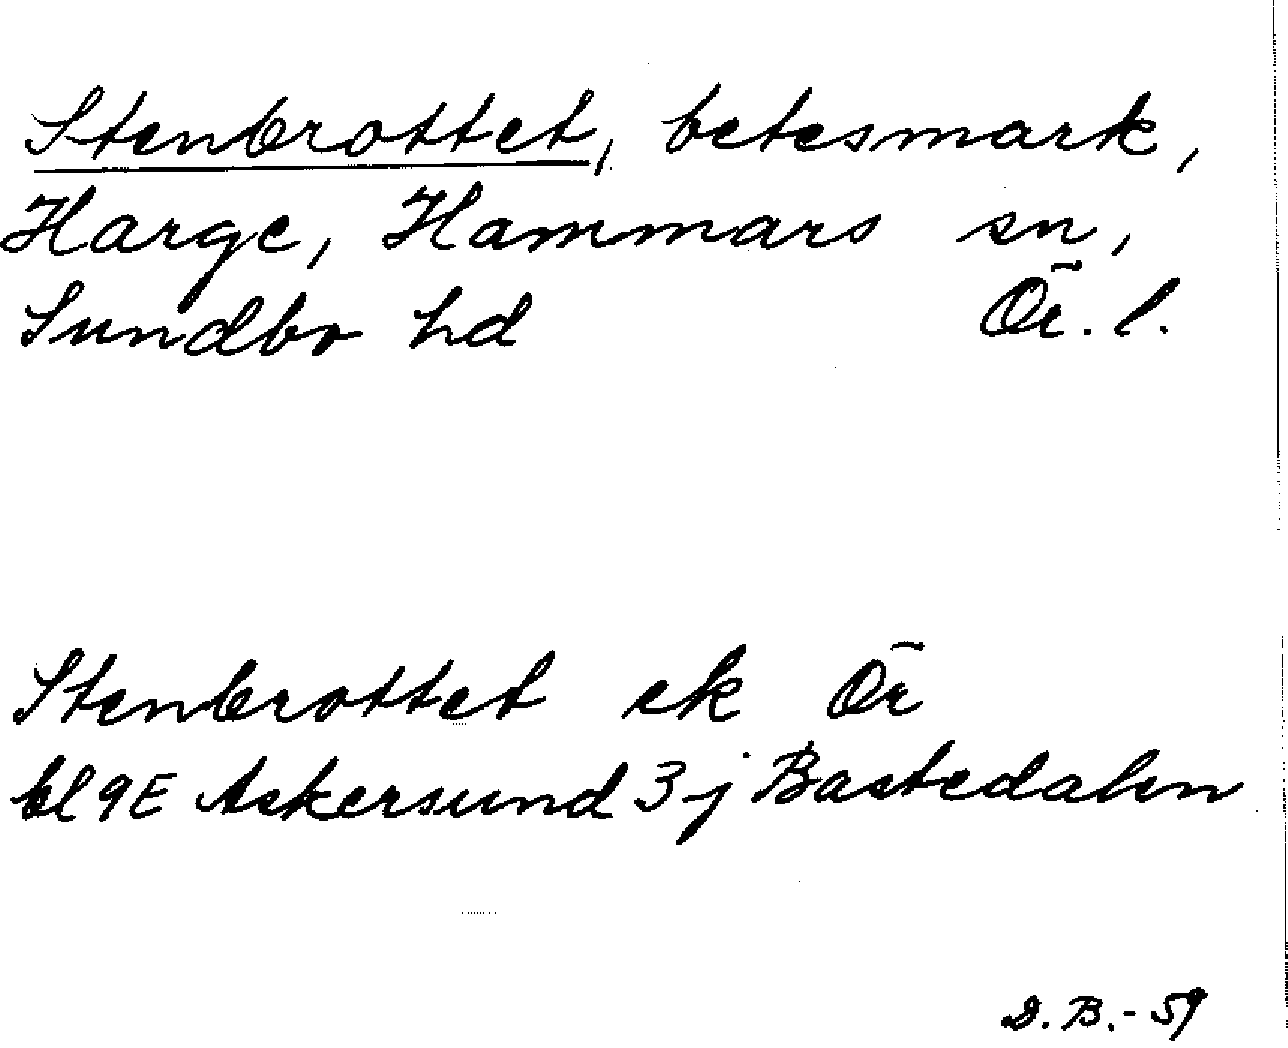 Stenbrottet, betesmark,
Harge, Hammars sn,
Sundbo hd Ör. l.
Stenbrottet ek Ör
bl 9E Askersund 3j Bastedalen
D. B. - 59